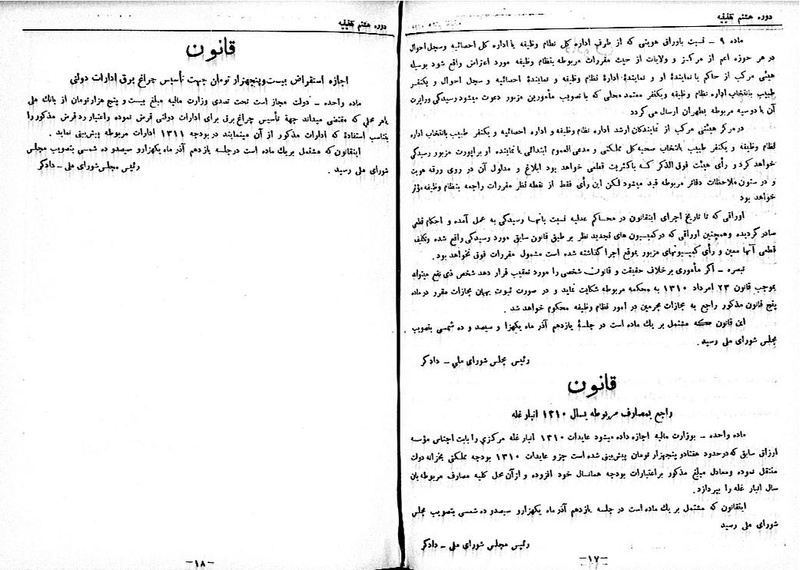 دوره هشتم تقنینیه
ماده ۹ – نسبت باوراق هویتی که از طرف اداره کل نظام وظیفه یا اداره کل احصائیه و سجل احوال
در هر حوزه اعم از مرکز و ولایات از حیث مقررات مربوطه بنظام وظیفه مورد اعتراض واقع شود بوسیله
هیئتی مرکب از حاکم یا نمایندۀ او و نمایندۀ ادارۀ نظام وظیفه و نمایندۀ احصائیه و سجل احوال و یکنفر
طبیب بانتخاب اداره نظام وظیفه و یکنفر معتمد محلی که با تصویب مأمورین مزبور دعوت میشود رسیدگی و راپرت
آن با دوسیه مربوطه بطهران ارسال می گردد
در مرکز هیئتی مرکب از نمایندگان ارشد اداره نظام وظیفه و اداره احصائیه و یکنفر طبیب بانتخاب اداره
نظام وظیفه و یکنفر طبیب بانتخاب صحیه کل مملکتی و مدعی العموم ابتدائی یا نماینده او براپورت مزبور رسیدگی
خواهد کرد و رأی هیئت فوق الذکر که باکثریت قطعی خواهد بود ابلاغ و مدلول آن در روی ورقه هویت
و در ستون ملاحظات دفاتر مربوطه قید میشود لکن این رأی فقط از نقطه نظر مقررات راجعه بنظام وظیفه مؤثر
خواهد بود
اوراقی که تا تاریخ اجرای اینقانون در محاکم عدلیه نسبت بآنها رسیدگی به عمل آمده و احکام قطعی
صادر گردیده و همچنین اوراقی که در کمیسیون های تجدید نظر بر طبق قانون سابق مورد رسیدگی واقع شده و تکلیف
قطعی آنها معین و رأی کمیسیونهای مزبور بموقع اجرا گذاشته شده است مشمول مقررات فوق نخواهد بود.
تبصره – اگر مأموری بر خلاف حقیقت و قانون شخصی را مورد تعقیب قرار دهد شخص ذی نفع میتواند
بموجب قانون ۲۳ امرداد ۱۳۱۰ به محکمه مربوطه شکایت نماید و در صورت ثبوت بهمان مجازات مقرر در ماده
پنج قانون مذکور راجع به مجازات مجرمین در امور نظام وظیفه محکوم خواهد شد.
این قانون که مشتمل بر یك ماده است در جلسۀ یازدهم آذر ماه یکهزار و سیصد و ده شمسی بتصویب
مجلس شورای ملی رسید.
رئیس مجلس شورای ملی – دادگر
قانون
راجع بمصارف مربوطه بسال ۱۳۱۰ انبار غله
ماده واحده – بوزارت مالیه اجازه داده میشود عایدات ۱۳۱۰ انبار غله مرکزی را بابت اجناس مؤسسه
ارزاق سابق که در حدود هفتاد و پنجهزار تومان پیش بینی شده است جزو عایدات ۱۳۱۰ بودجه مملکتی بخزانه دولت
منتقل نموده و معادل مبلغ مذکور بر اعتبارات بودجه همانسال خود افزوده و از آن محل کلیه مصارف مربوطه بان
سال انبار غله را بپردازد.
اینقانون که مشتمل بر یك ماده است در جلسه یازدهم آذر ماه یکهزار و سیصد و ده شمسی بتصویب مجلس
شورای ملی رسید
رئیس مجلس شورای ملی – دادگر
–۱۷–
دوره هشتم تقنینیه
قانون
اجازه استقراض بیست و پنجهزار تومان جهت تأسیس چراغ برق ادارات دولتی
ماده واحده – دولت مجاز است تحت تصدی وزارت مالیه مبلغ بیست و پنج هزار تومان از بانك ملی
یا هر محلی که مقتضی میداند جهة تأسیس چراغ برق برای ادارات دولتی قرض نموده و اعتبار رد قرض مذکور را
بتناسب استفادۀ که ادارات مذکور از آن مینمایند در بودجه ۱۳۱۱ ادارات مربوطه پیش بینی نماید.
اینقانون که مشتمل بر یك ماده است در جلسه یازدهم آذر ماه یکهزار و سیصد و ده شمسی بتصویب مجلس
شورای ملی رسید.
رئیس مجلس شورای ملی – دادگر
–۱۸–